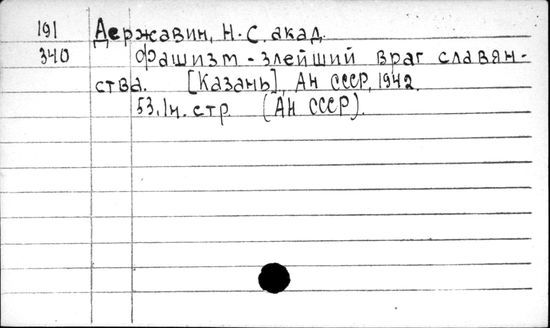 191 Державин, Н.С. акад.
340 Фашизм - злейший враг славян-
ства. [Казань], Ан СССР, 1942.
53, 1н. стр. (Ан СССР).